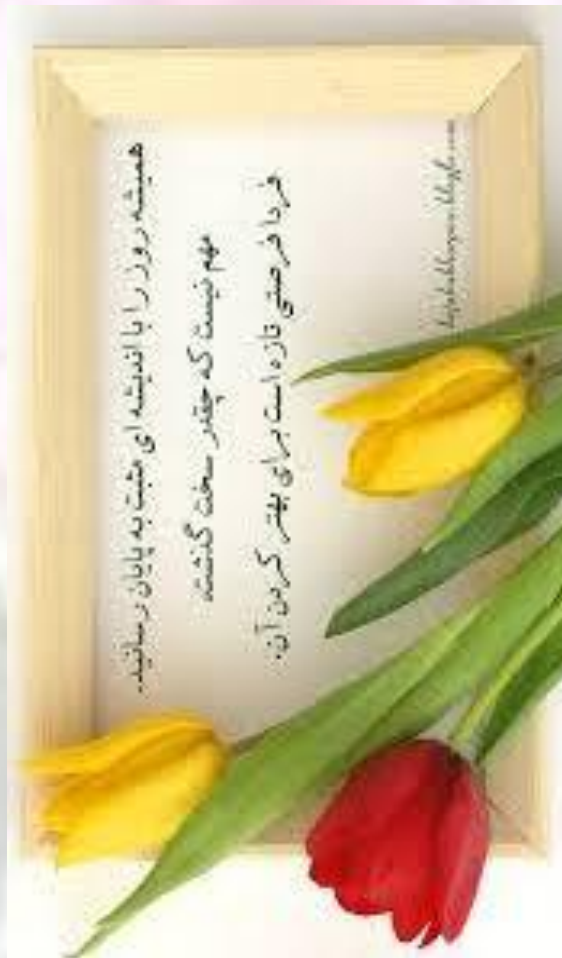 همیشه روز را با اندیشه ای مثبت به پایان رسانید..
مهم نیست که چقدر سخت گذشت
فردا فرصتی تازه است برای بهتر کردن آن.